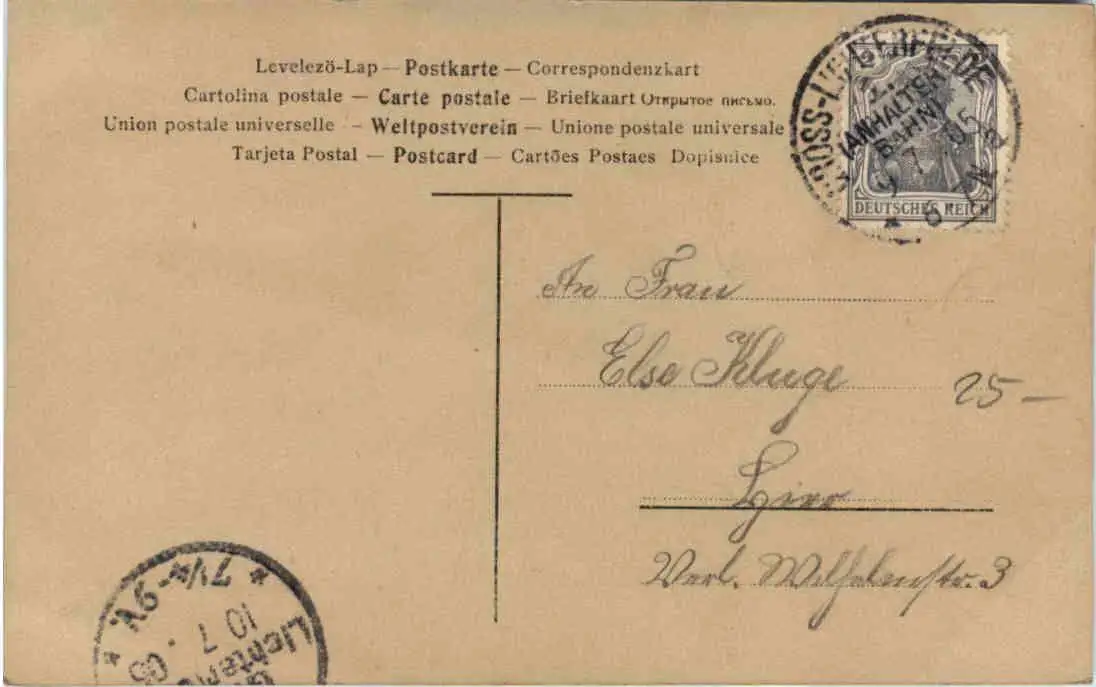 Levelezö-Lap — Postkarte — Correspondenzkart
Cartolina postale — Carte postale — Briefkaart Открытое письмо.
Union postale universelle - Weltpostverein - Unione postale universale
Tarjeta Postal — Postcard — Cartões Postaes Dopisnice
GROSS-LICHTERFELDE
(ANHALTER
BAHN)
9 7
DEUTSCHES REICH
An Frau
Else Kluge
25 —
Hier
Verl. Wilhelmstr. 3
* 7½-9V. *
10 7. 05